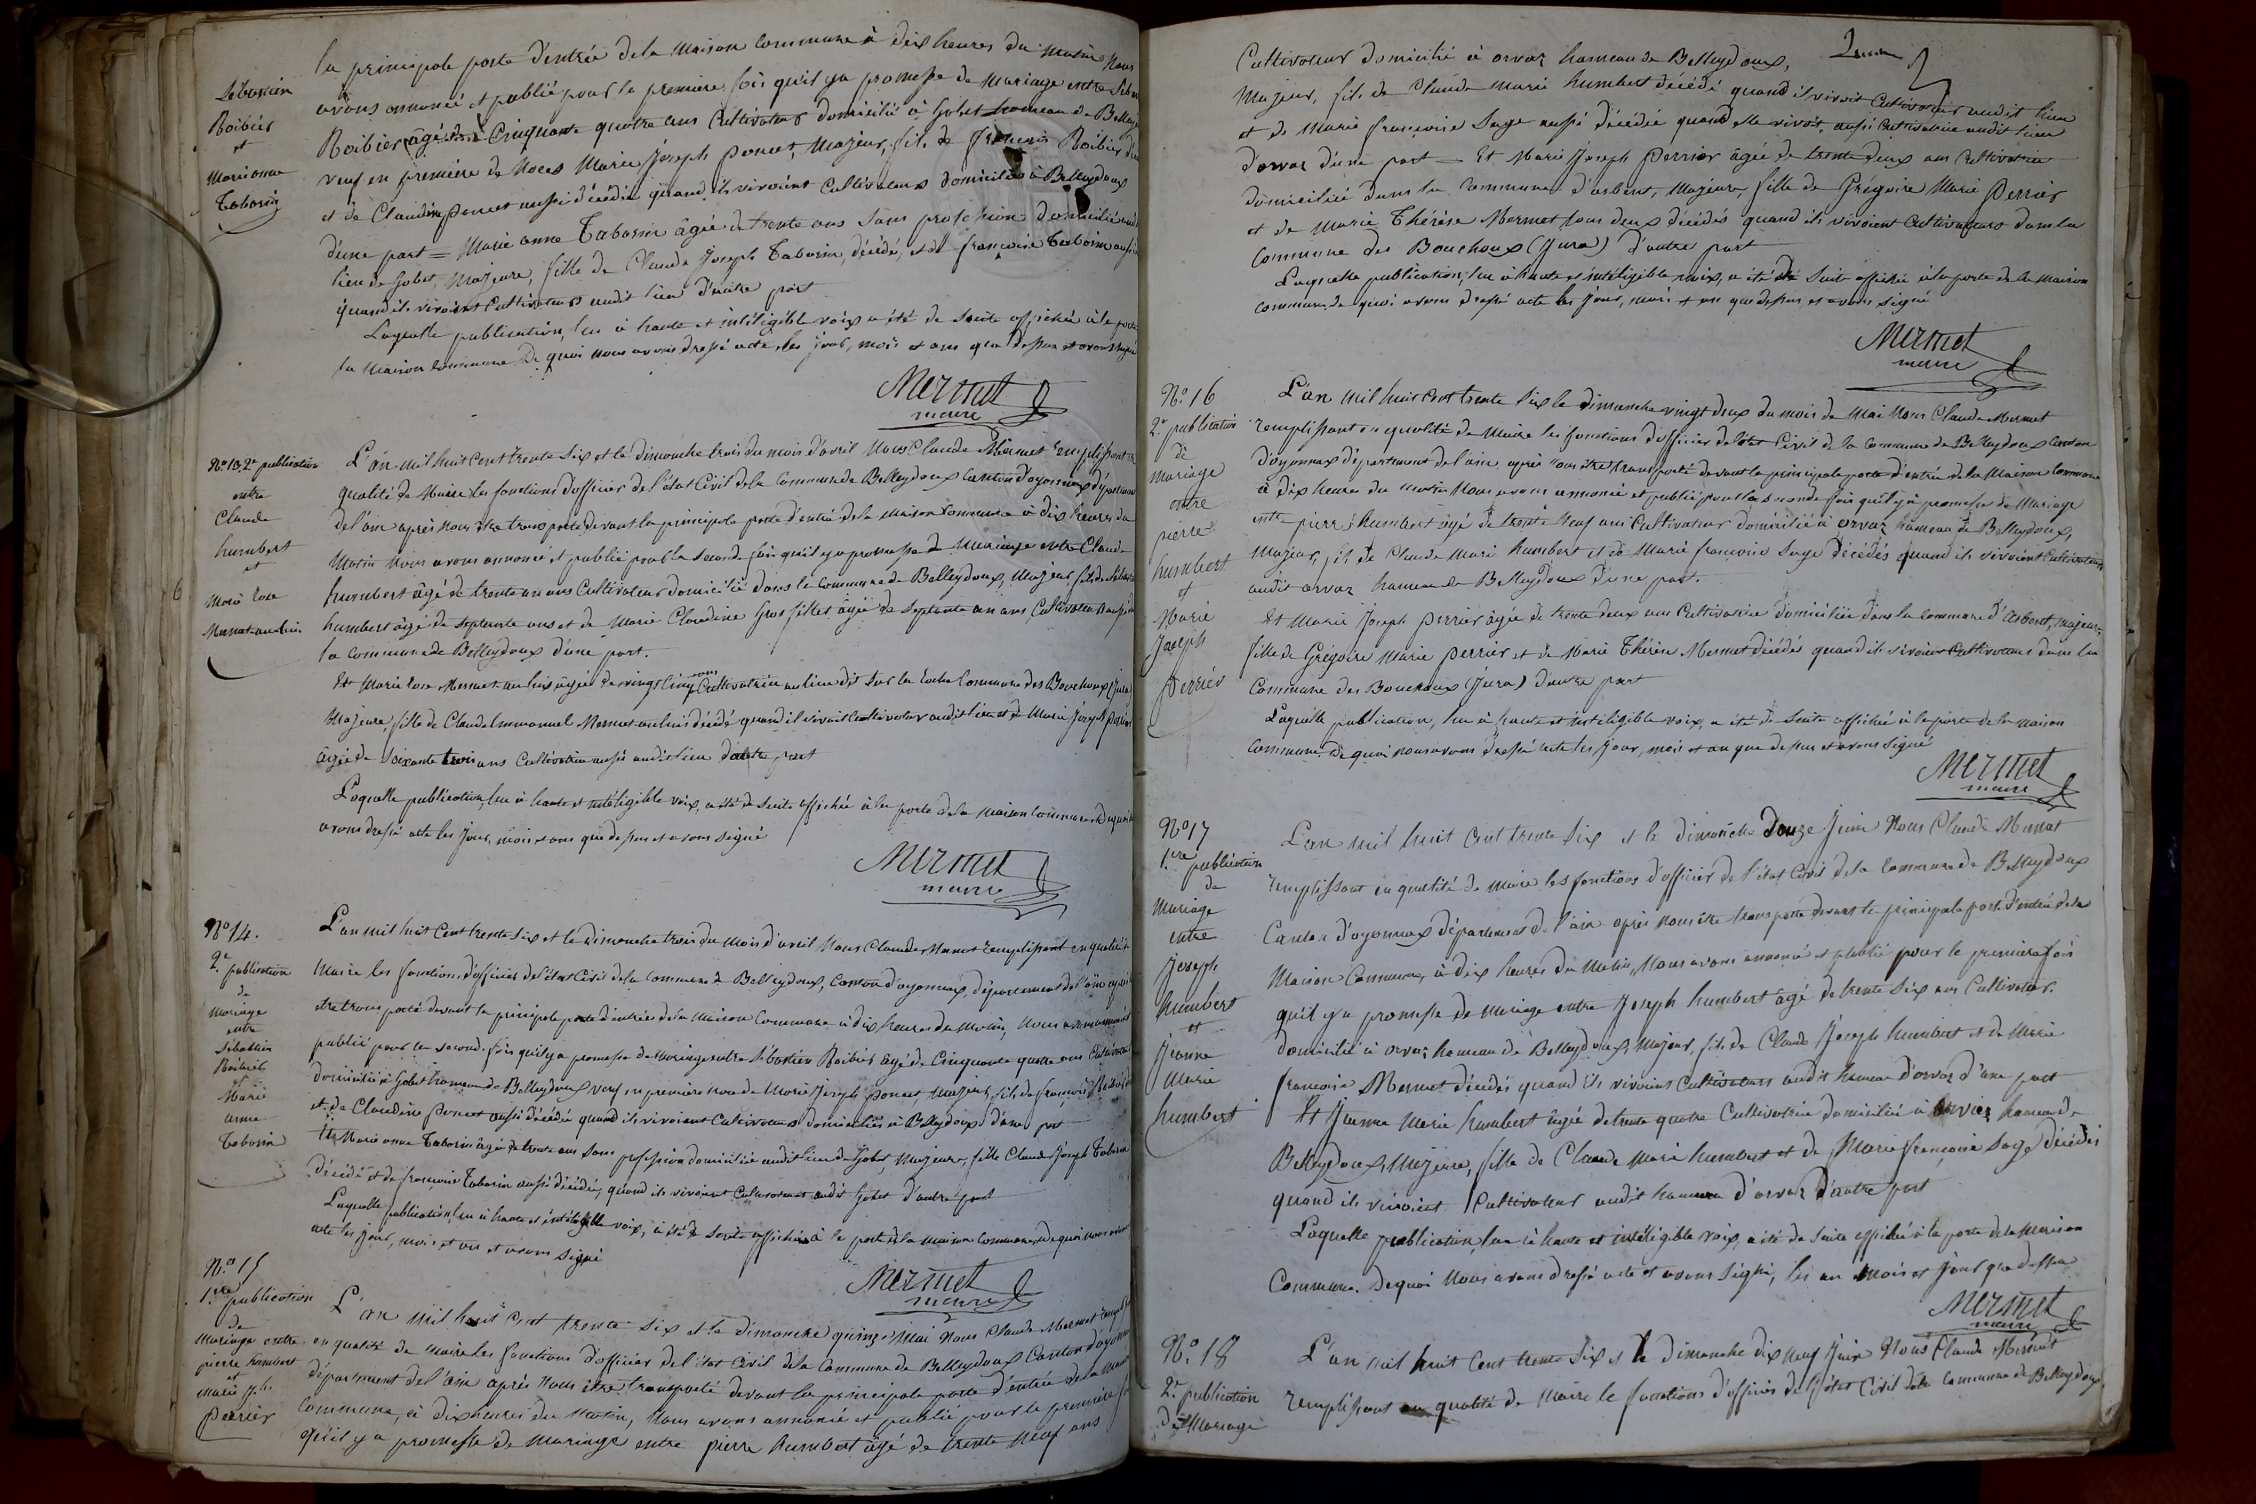 Sébastien
Roibier
et
Marie anne
Taborin
la principale porte d'entrée de la maison commune à dix heures du matin Nous
avons annoncé et publié pour la première fois qu'il y a promesse de mariage entre Sébas
Roibier âgé de Cinquante quatre ans Cultivateur domicilié à Gobet hameau de Belley
veuf en première de Noces Marie Joseph poncet, Majeur, fils de françois Roibier
et de Claudine poncet aussi décédée quand ils vivoient Cultivateurs domiciliés à Belleydoux
d'une part = Marie anne Taborin âgée de trente ans Sans profession domiciliée
lieu de Gobet, Majeure, fille de Claude Joseph Taborin, décédé, et de françoise Taborin aussi
quand ils vivoient Cultivateurs audit lieu d'autre part
Laquelle publication, lue à haute et intéligible voix a été de suite affichée à la porte
la Maison Commune De quoi nous avons dressé acte, les jour, mois et ans que dessus et avons signé
Mermet
maire
No 13. 2e publication
entre
Claude
humbert
et
Marie rose
Mermet
L'an mil huit Cent trente Six et le dimanche trois du mois d'avril Nous Claude Mermet remplissant en
qualité de Maire les fonctions d'officier de l'état Civil de la Commune de Belleydoux Canton d'oyonnax département
de l'ain après nous être transporté devant la principale porte d'entrée de la maison Commune à dix heures du
Matin Nous avons annoncé et publié pour la seconde fois qu'il y a promesse de Mariage entre Claude
humbert âgé de trente un ans Cultivateur domicilié dans la Commune de Belleydoux, Majeur, fils de
humbert âgé de Septante ans et de Marie Claudine Grosfillet âgée de Septante un ans Cultivateurs
la Commune de Belleydoux d'une part.
Et Marie rose Mermet âgée de vingt Cinq ans Cultivatrice au lieu dit Sur la roche Commune des Bouchoux (Jura)
Majeure, fille de Claude Emmanuel Mermet décédé quand il vivoit Cultivateur audit lieu et de Marie Joseph perrier
âgée de Soixante trois ans Cultivatrice aussi audit lieu d'autre part
Laquelle publication, lue à haute et intéligible voix, a été de suite affichée à la porte de la maison Commune de quoi
avons dressé acte les jour, mois et ans que dessus et avons signé
Mermet
maire
No 14.
2e publication
de
mariage
entre
Sébastien
Roibier
et
Marie
anne
Taborin
L'an mil huit Cent trente Six et le dimanche trois du mois d'avril Nous Claude Mermet remplissant en qualité de
Maire les fonctions d'officier de l'état Civil de la Commune de Belleydoux, Canton d'oyonnax, département de l'ain après
être transporté devant la principale porte d'entrée de la Maison Commune à dix heures du Matin, Nous avons annoncé et
publié pour la seconde fois qu'il y a promesse de Mariage entre Sébastien Roibier âgé de Cinquante quatre ans Cultivateur
domicilié à Gobet hameau de Belleydoux veuf en première noce de Marie Joseph poncet, Majeur, fils de françois Roibier
et de Claudine poncet aussi décédée quand ils vivoient Cultivateurs domiciliés à Belleydoux d'une part
Et Marie anne Taborin âgée de trente ans Sans profession domiciliée audit lieu de Gobet, Majeure, fille Claude Joseph Taborin
décédé et de françoise Taborin aussi décédée, quand ils vivoient Cultivateurs audit Gobet d'autre part
Laquelle publication, lue à haute et intéligible voix, a été de suite affichée à la porte de la maison Commune, de quoi nous avons
acte les jour, mois et an et avons signé
Mermet
maire
No 15
1ère publication
de
mariage entre
pierre humbert
et
marie jh
perrier
L'an mil huit Cent trente Six et le dimanche quinze Mai Nous Claude Mermet rempl
en qualité de maire les fonctions d'officier de l'état Civil de la Commune de Belleydoux Canton d'oyonn
département de l'ain après Nous être transporté devant la principale porte d'entrée de la mai
commune, à dix heures du Matin, Nous avons annoncé et publié pour la première f
qu'il y a promesse de mariage entre pierre humbert âgé de trente Neuf ans
Cultivateur domicilié à orvaz hameau de Belleydoux,
Majeur, fils de Claude Marie humbert décédé quand il vivoit Cultivateur audit lieu
et de Marie françoise Sage aussi décédée quand elle vivoit, aussi Cultivatrice audit lieu
d'orvaz d'une part — Et Marie Joseph Perrier âgée de trente deux ans Cultivatrice
domiciliée dans la Commune d'arbent, Majeure, fille de Grégoire Marie Perrier
et de Marie Thérèse Mermet tous deux décédés quand ils vivoient Cultivateurs dans la
Commune des Bouchoux (Jura) d'autre part
Laquelle publication, lue à haute et intéligible voix, a été de suite affichée à la porte de la Maison
commune, de quoi avons dressé acte les jour, mois et an que dessus et avons signé
Mermet
maire
No 16
2e publication
de
Mariage
entre
pierre
humbert
et
Marie
Joseph
Perrier
L'an mil huit Cent trente Six le dimanche vingt deux du mois de Mai Nous Claude Mermet
remplissant en qualité de Maire les fonctions d'officier de l'état Civil de la Commune de Belleydoux Canton
d'oyonnax département de l'ain après nous être transporté devant la principale porte d'entrée de la Maison Commune
à dix heures du matin Nous avons annoncé et publié pour la seconde fois qu'il y a promesse de Mariage
entre pierre humbert âgé de trente Neuf ans Cultivateur domicilié à orvaz hameau de Belleydoux,
Majeur, fils de Claude Marie humbert et de Marie françoise Sage décédés quand ils vivoient Cultivateurs
audit orvaz hameau de Belleydoux d'une part.
Et Marie Joseph perrier âgée de trente deux ans Cultivatrice domiciliée dans la Commune d'arbent, majeure,
fille de Grégoire Marie perrier et de Marie Thérèse Mermet décédés quand ils vivoient Cultivateurs dans la
Commune des Bouchoux (Jura) d'autre part
Laquelle publication, lue à haute et intéligible voix, a été de suite affichée à la porte de la maison
Commune de quoi nous avons dressé acte les jour, mois et an que dessus et avons signé
Mermet
maire
No 17
1ère publication
de
Mariage
entre
Joseph
humbert
et
Jeanne
Marie
humbert
L'an mil huit Cent trente Six et le dimanche Douze Juin Nous Claude Mermet
remplissant en qualité de maire les fonctions d'officier de l'état Civil de la Commune de Belleydoux
Canton d'oyonnax département de l'ain après nous être transporté devant la principale porte d'entrée de la
Maison Commune, à dix heures du Matin, Nous avons annoncé et publié pour la première fois
qu'il y a promesse de mariage entre Joseph humbert âgé de trente Six ans Cultivateur.
domicilié à orvaz hameau de Belleydoux, Majeur, fils de Claude Joseph humbert et de Marie
françoise Mermet décédés quand ils vivoient Cultivateurs audit hameau d'orvaz d'une part
Et Jeanne Marie humbert âgée de trente quatre Cultivatrice domiciliée à hameau de
Belleydoux, Majeure, fille de Claude Marie humbert et de Marie françoise Sage décédés
quand ils vivoient Cultivateurs audit hameau d'orvaz d'autre part
Laquelle publication, lue à haute et intéligible voix, a été de suite affichée à la porte de la Maison
Commune. De quoi Nous avons dressé acte et avons signé, les an mois et jour que dessus
Mermet
maire
No 18
2e publication
de Mariage
L'an mil huit Cent trente Six et le dimanche dix Neuf Juin Nous Claude Mermet
remplissant en qualité de Maire le fonctions d'officier de l'état Civil de la Commune de Belleydoux,